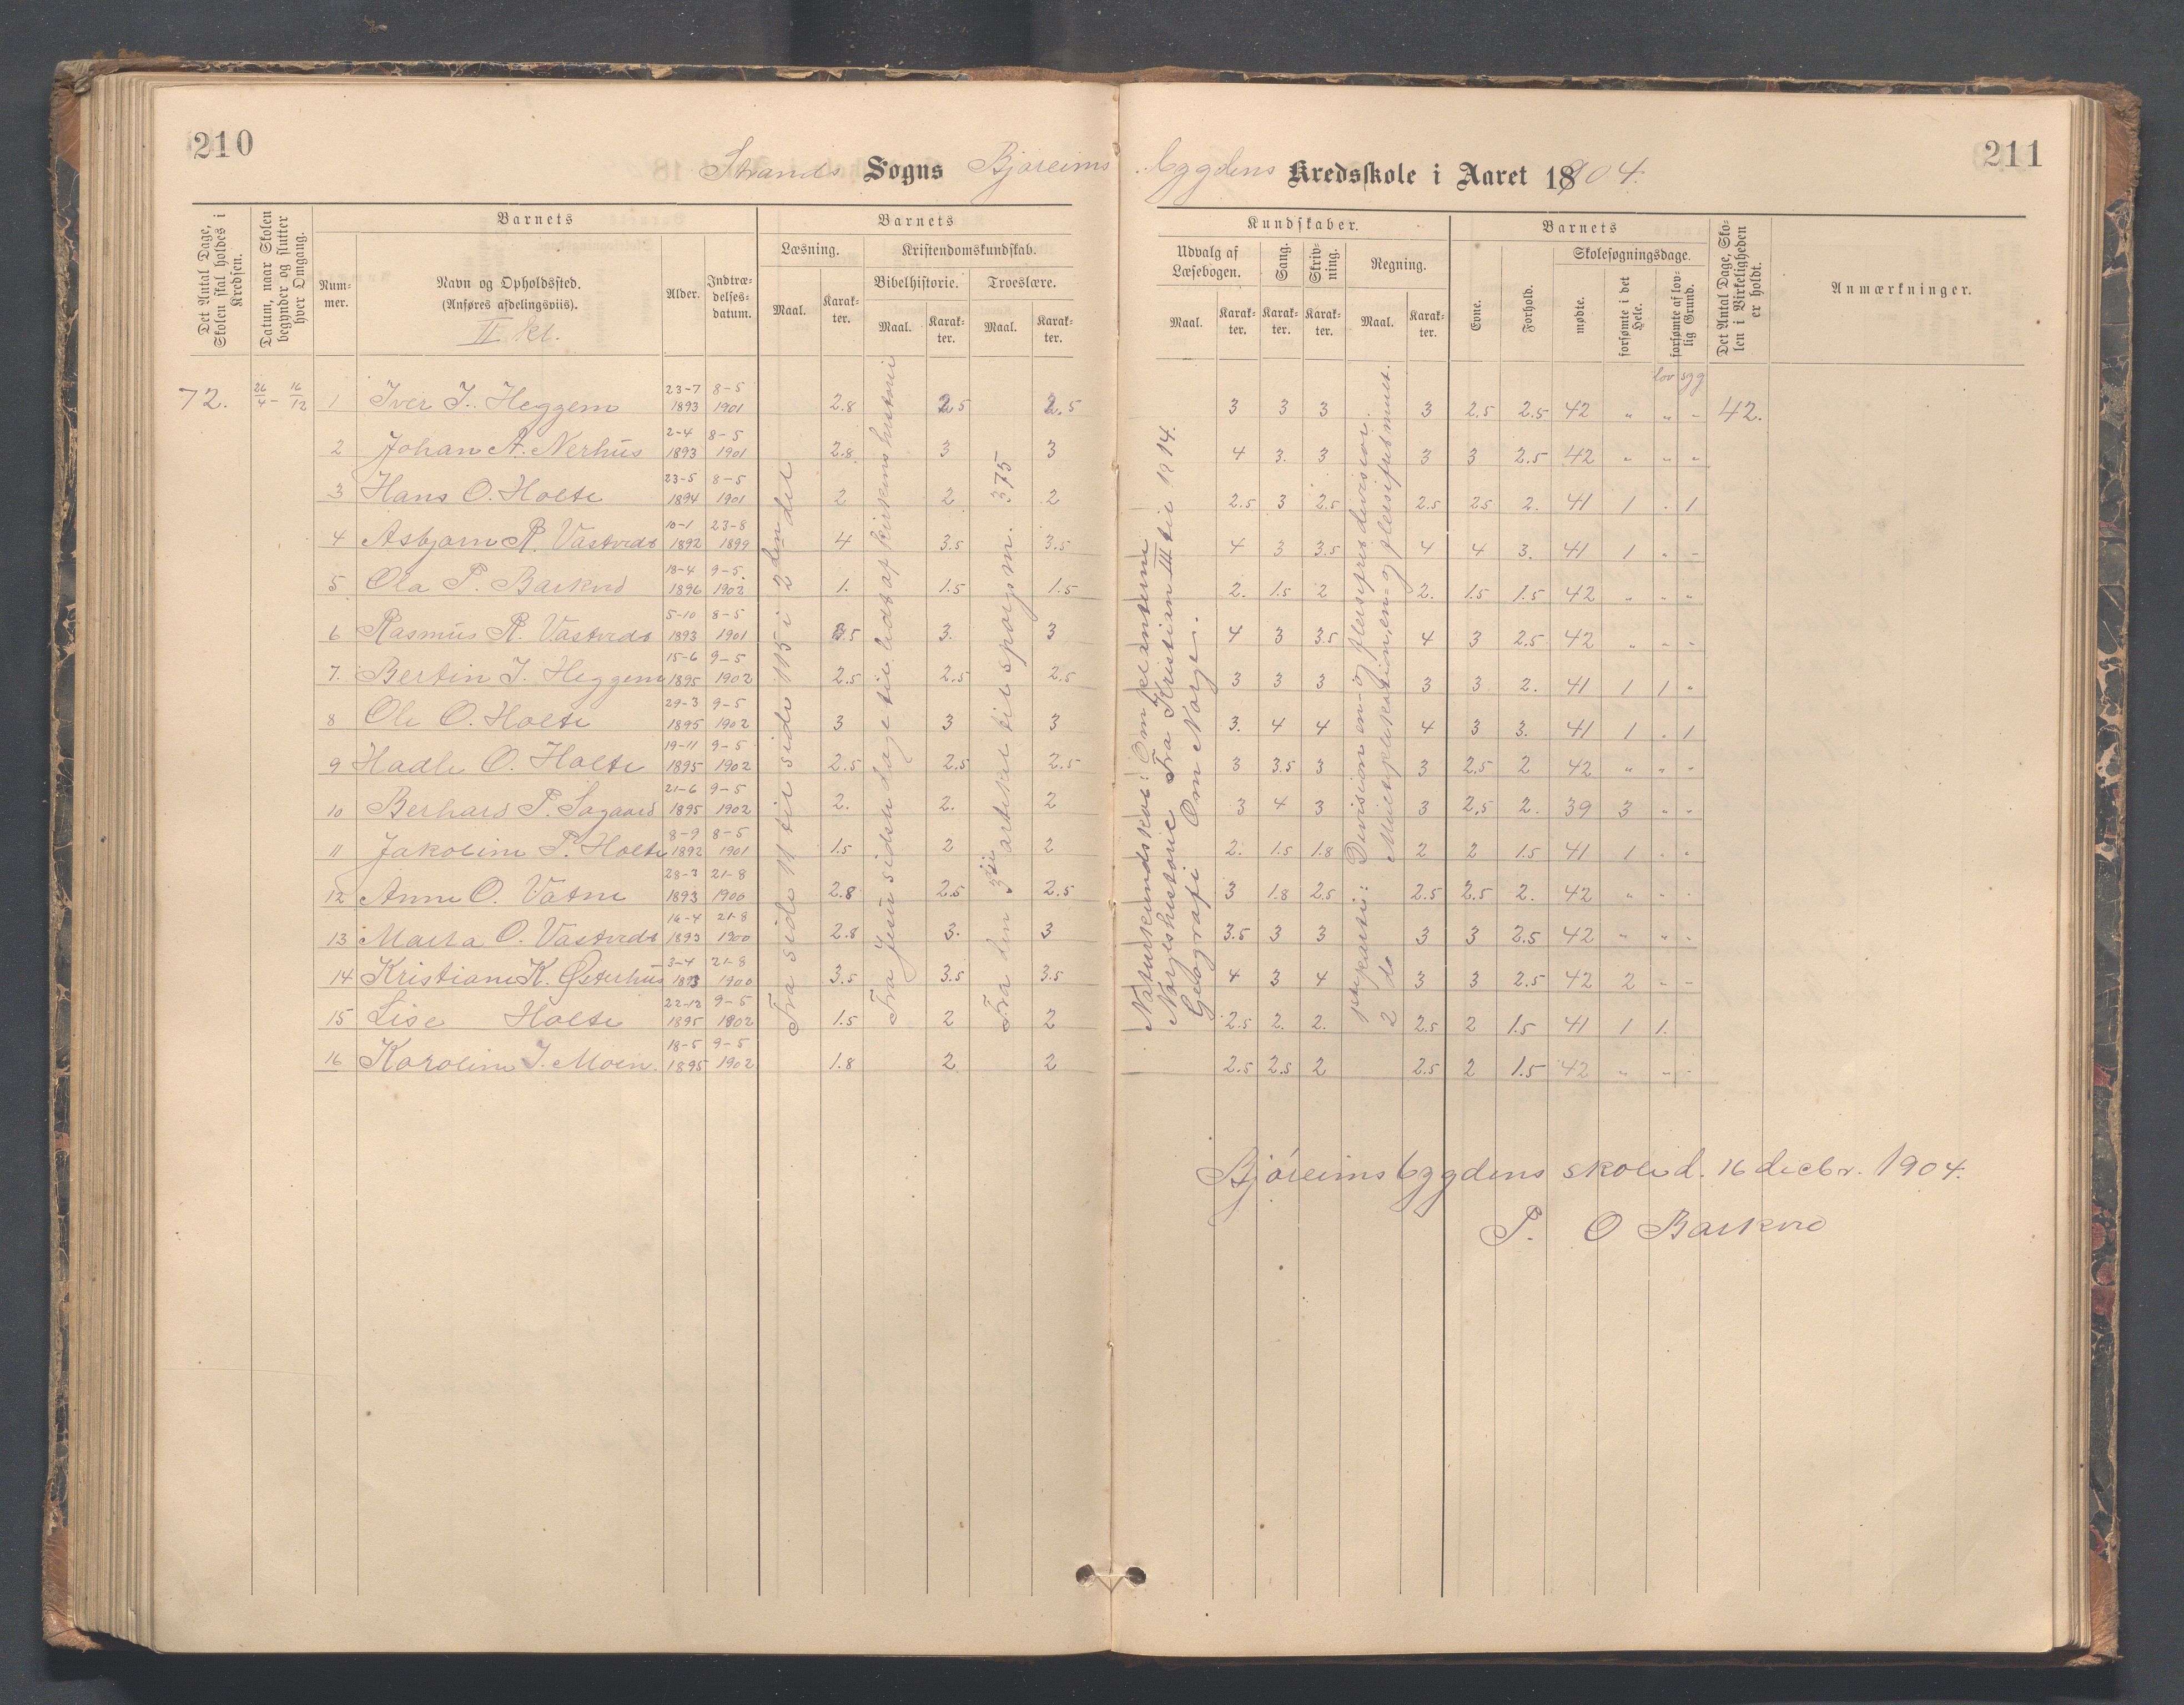 210
211
Strands Sogns Bjøreims bygdens Kredsskole i Aaret 18904.
Det Antal Dage, Skolen skal holdes i Kredsen.
Datum, naar Skolen begynder og slutter hver Omgang.
Barnets
Nummer.
Navn og Opholdssted.
(Anføres afdelingsviis).
II kl.
Alder.
Indtrædelsesdatum.
Barnets
Læsning.
Kristendomskundskab.
Bibelhistorie.
Troeslære.
Maal.
Karakter.
Maal.
Karakter.
Maal.
Karakter.
Kundskaber.
Udvalg af Læsebogen.
Sang.
Skrivning.
Regning.
Maal.
Karakter.
Karakter.
Karakter.
Maal.
Karakter.
Barnets
Evne.
Forhold.
Skolesøgningsdage.
mødte.
forsømte i det Hele.
forsømte af lovlig Grund.
Det Antal Dage, Skolen i Virkeligheden er holdt.
Anmærkninger.
lov syg
72. 26/4 - 16/12 1 Iver I. Heggem 23-7 1893 8-5 1901 2.8 2.5 2.5 3 3 3 3 2.5 2.5 42 " " - 42.
2 Johan A. Nerhus 2-4 1893 8-5 1901 2.8 3 3 4 3. 3 3 3 2.5 42 " " "
3 Hans O. Holte 23-5 1894 8-5 1901 2 2 2 2.5 3 2.5 2.5 25 2. 41 1 . 1
4 Asbjørn R. Vastvedt 10-1 1892 23-8 1899 4 3.5 3.5 4 3 3.5 4 4 3. 41 1 " -
5 Ola P. Barkvd 18-4 1896 9-5. 1902 1. 1.5 1.5 2. 1.5 2 2. 1.5 1.5 42 " " "
6 Rasmus R. Vastvedt 5-10 1893 8-5 1901 3.5 3. 3 4 3 3.5 4 3 2.5 42 " - -
7. Bertin I. Heggem 15-6 1895 9-5 1902 2.5 2.5 2.5 3 3 3 3 3 2. 41 1 1 "
8 Ole O. Holte 29-3 1895 9-5 1902 3 3 3 3. 4 4 4 3 3. 41 1 . 1
9 Hadle O. Holte 19-11 1895 9-5 1902 2.5 2.5 2.5 3 3.5 3 3 2.5 2 42 " " "
10 Berhard P. Sagaard 21-6 1895 9-5 1902 2. 2. 2 3 4 3 3 2.5 2. 39 3 " -
11 Jakobine P. Holte 8-9 1892 8-5 1901 1.5 2 2 2. 1.5 1.8 2 2 1.5 41 1 . "
12 Anne O. Vatne 28-3 1893 21-8 1900 2.8 2.5 2.5 3 1.8 2.5 2.5 2.5 2. 42 " - -
13 Marta O. Vastvedt 16-4 1893 21-8 1900 2.8 3. 3 3.5 3 3 3 3 2.5 42 " " -
14 Kristiane K. Østerhus 3-4 1893 21-8 1900 3.5 3.5 3.5 4 3 4 3 3 2.5 42 2 - -
15 Lise Holte 22-12 1895 9-5 1902 1.5 2 2 2.5 2. 2. 2.5 2 1.5 41 1 1.
16 Karoline I. Moen. 18-5 1895 9-5 1902 1.8 2 2 2.5 2.5 2 2.5 2 1.5 42 " " -
Fra side 11 til side 115 i 2den del
Fra Jesu sidste dage til lidt af kirkens historie
Fra den 3die artikel til spørgsm. 375
Naturkundskab: Om planterne
Norgeshistorie Fra Kristian III til 1814.
Geografi Om Norge.
1ste parti: Devision en- og flersifret devisior.
2 do Multiplikation, en- og flersifret mult.
Bjøreimsbygdens skole d. 16 decbr. 1904.
P. O Barkvd